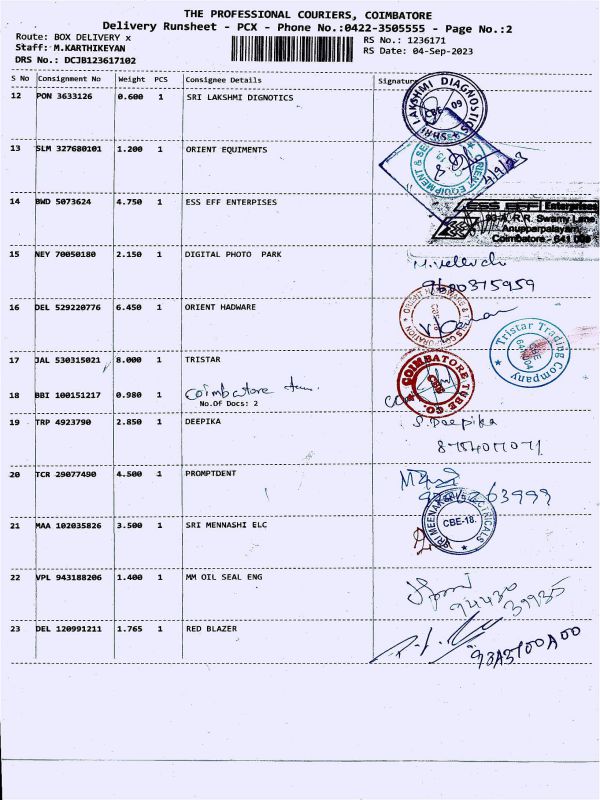 THE PROFESSIONAL COURIERS, COIMBATORE
Delivery Runsheet - PCX - Phone No.:0422-3505555 - Page No.:2
Route: BOX DELIVERY x
RS No.: 1236171
Staff: M.KARTHIKEYAN
RS Date: 04-Sep-2023
DRS No.: DCJB123617102
S No Consignment No Weight PCS Consignee Details Signature
12 PON 3633126 0.600 1 SRI LAKSHMI DIGNOTICS
LAKSHMI DIAGNOSTICS
CBE 09
13 SLM 327680101 1.200 1 ORIENT EQUIMENTS
ORIENT EQUIPMENT &
4/9/23
14 BWD 5073624 4.750 1 ESS EFF ENTERPISES
ESS EFF Enterprises
93-A, R.R. Swamy Lane,
Anupparpalayam,
Coimbatore - 641 009
15 NEY 70050180 2.150 1 DIGITAL PHOTO PARK
9600375959
16 DEL 529220776 6.450 1 ORIENT HADWARE
Tristar Trading Company
CBE
17 JAL 530315021 8.000 1 TRISTAR
COIMBATORE TUBE CO.
18 BBI 100151217 0.980 1 Coimbatore
No.Of Docs: 2
19 TRP 4923790 2.850 1 DEEPIKA
S. Deepika
20 TCR 29077490 4.500 1 PROMPTDENT
21 MAA 102035826 3.500 1 SRI MENNASHI ELC
CBE-18.
22 VPL 943188206 1.400 1 MM OIL SEAL ENG
94430
39935
23 DEL 120991211 1.765 1 RED BLAZER